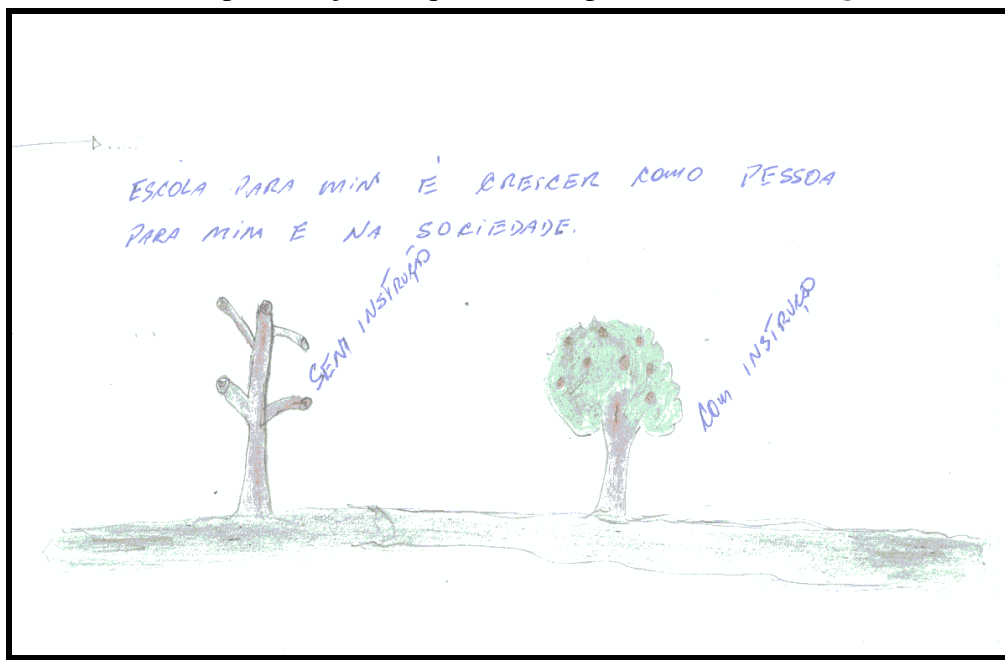 ESCOLA PARA MIN É CRESCER COMO PESSOA
PARA MIM E NA SOCIEDADE.
SEM INSTRUÇÃO
COM INSTRUÇÃO